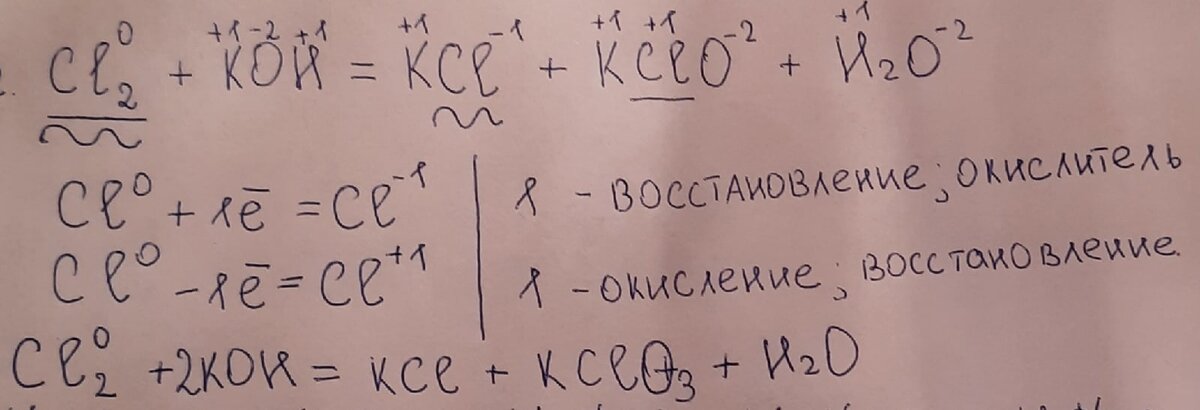 Cl₂⁰ + K⁺¹O⁻²H⁺¹ = K⁺¹Cl⁻¹ + K⁺¹Cl⁺¹O⁻² + H₂⁺¹O⁻²
Cl⁰ + 1ē = Cl⁻¹ | 1 - восстановление; окислитель
Cl⁰ - 1ē = Cl⁺¹ | 1 - окисление; восстановление.
Cl₂⁰ + 2KOH = KCl + KClO₃ + H₂O